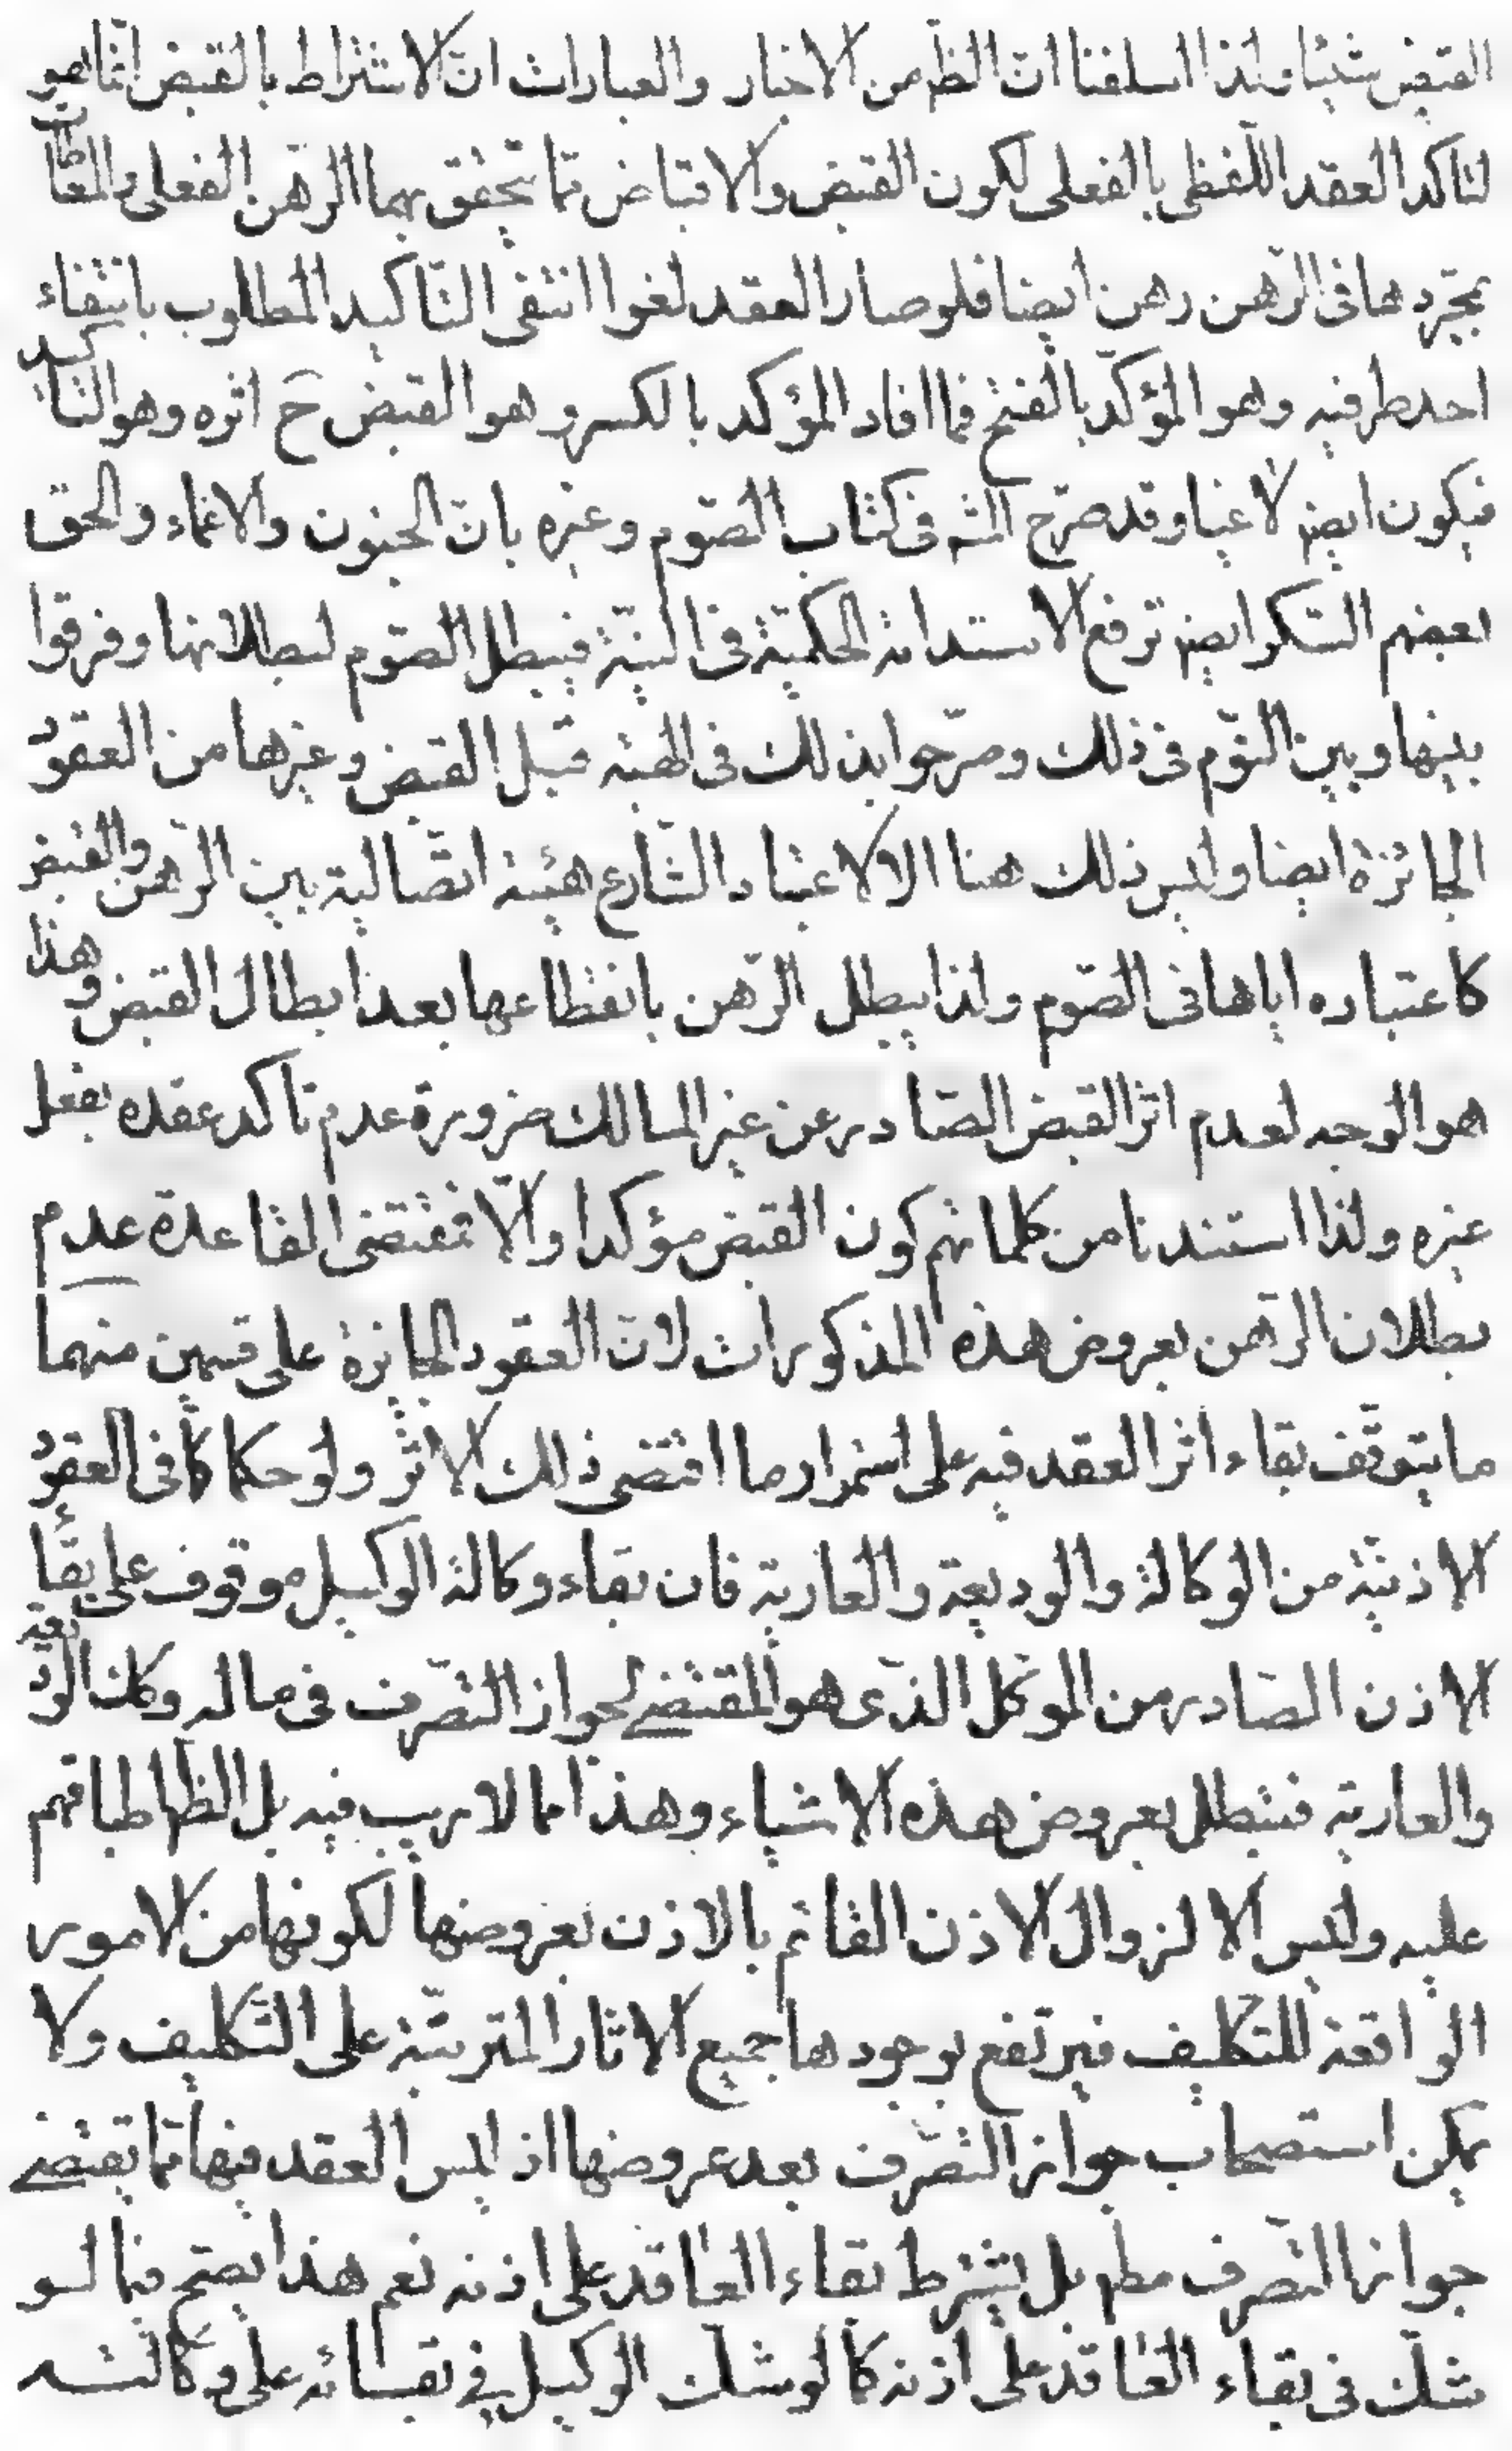 القبض شيئا ولذا اسلفنا انّ الظّ من الاخبار والعبارات انّ الاشتراط بالقبض انّما هو
لتاكد العقد اللّفظى بالفعلى لكون القبض والاقباض ممّا يتحقق بهما الرّهن الفعلى والمعاطات
بمجرّدها فى الرّهن رهن ايضا فلو صار العقد لغوا انتفى التّاكيد المطلوب بانتفاء
احد طرفيه وهو المؤكّد بالفتح فما افاد المؤكد بالكسر وهو القبض حَ اثره وهو التاكيد
فيكون ايضه لاغيا وقد صرّح المشه فى كتاب الصّوم وغيره بانّ الجنون والاغماء والحق
بعضهم السّكر ايضه ترفع الاستدامة الحكميّة فى النيّة فيبطل الصّوم لبطلانها وفرقوا
بينها وبين النّوم فى ذلك وصرّحوا بذلك فى الهبة قبل القبض وغيرها من العقود
الجائزة ايضا وليس ذلك هنا الا لاعتبار الشّارع هيئة اتّصالية بين الرّهن والقبض
كاعتباره اياها فى الصّوم ولذا يبطل الرّهن بانقطاعها بعد ابطال القبض وهذا
هو الوجه لعدم اثر القبض الصّادر عن غير المالك ضرورة عدم تاكد عقده بفعل
غيره ولذا استفدنا من كلماتهم كون القبض مؤكدا والّا فمقتضى القاعدة عدم
بطلان الرّهن بعروض هذه المذكورات لانّ العقود الجائزة على قسمين منهما
ما يتوقّف بقاء اثر العقد فيه على استمرار ما اقتضى ذلك الاثر ولو حكما كما فى العقود
الاذنيّة من الوكالة والوديعة والعارية فان بقاء وكالة الوكيل موقوف على بقاء
الاذن الصّادر من الموكّل الذّى هو المقتضى لجواز التّصرّف فى ماله وكك الوديعة
والعارية فتبطل بعروض هذه الاشياء وهذا مما لا ريب فيه بل الظّ اطباقهم
عليه وليس الا لزوال الاذن القائم بالاذن بعروضها لكونها من الامور
الرافعة للتكليف فيرتفع بوجودها جميع الاثار المترتبّة على التّكليف ولا
يمكن استصحاب جواز التّصرّف بعد عروضها اذ ليس العقد فيها ممّا يقتضى
جواز التّصرف مطه بل يشترط بقاء العاقد على اذنه نعم هذا يصّح فيما لو
شكّ فى بقاء العاقد على اذنه كما لو شكّ الوكيل فى بقائه على وكالته